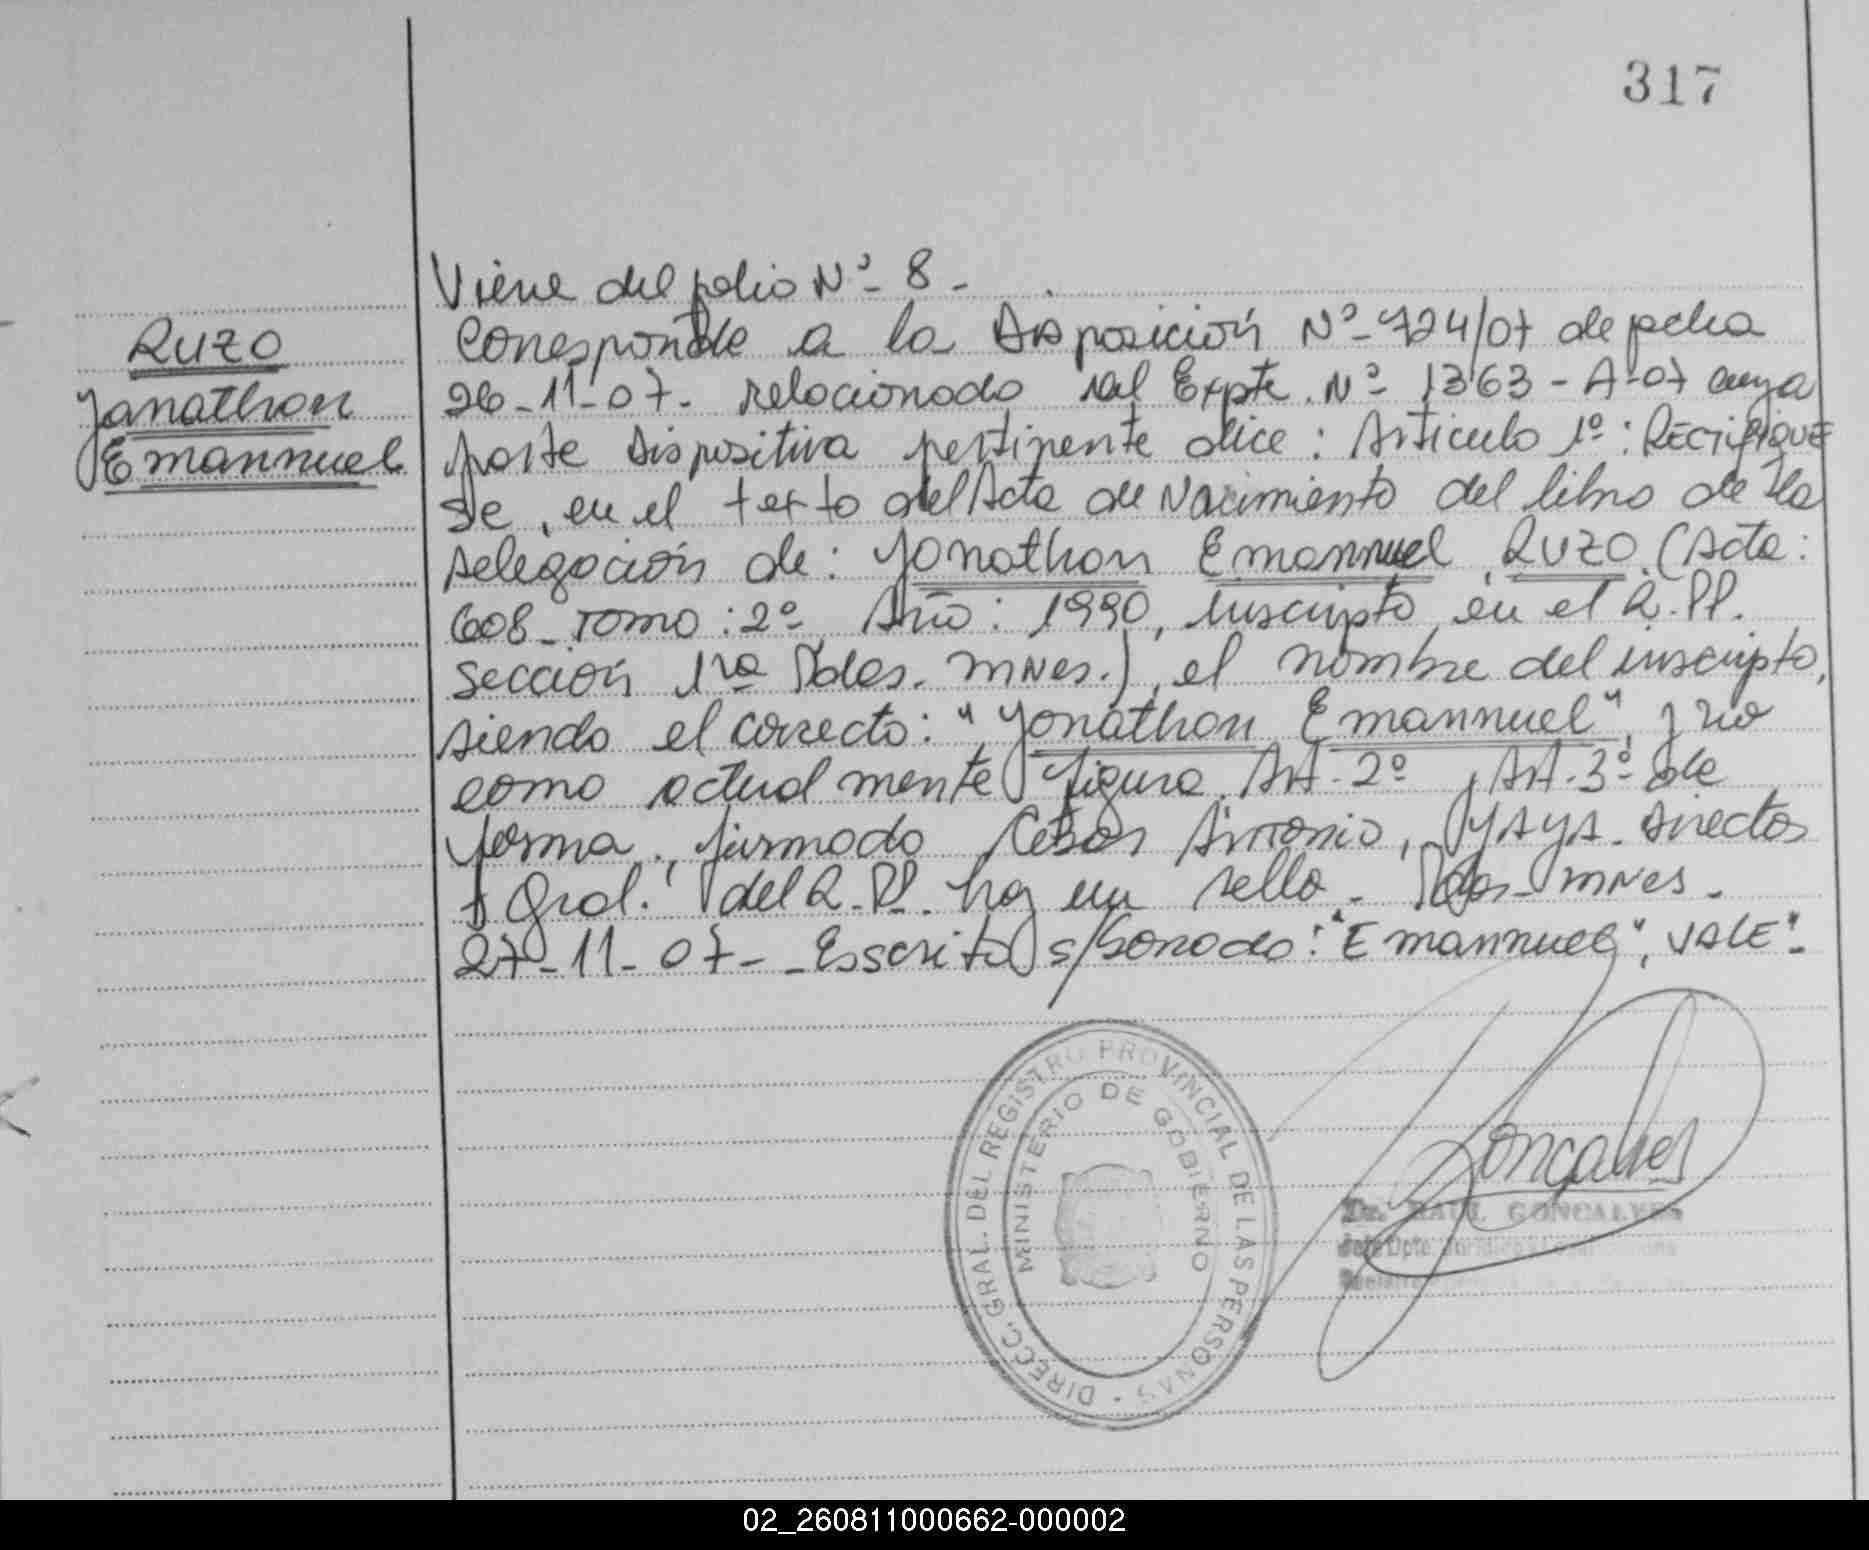 317
Viene del folio Nº 8 -
RUZO
Jonathon
Emannuel
Corresponde a la Disposición Nº 724/07 de fecha
26-11-07- relacionado al Expte. Nº 1363-A-07 cuya
parte dispositiva pertinente dice: Articulo 1º: RECTIFIQUE
se, en el texto del Acta de Nacimiento del libro de la
delegación de: Jonathon Emannuel RUZO (Acta:
608- Tomo: 2º Año: 1990, inscripto en el R.PP.
sección 1ra Pdas. MNES.), el nombre del inscripto,
siendo el correcto: "Jonathon Emannuel", y no
como actualmente figura. Art. 2º y Art. 3º de
forma. firmado César Antonio, YAYA. Director
Gral. del R.PP. hay un sello. Pdas- MNES.
27-11-07- -Escrito s/borrado: "Emannuel", VALE"-
DIRECC. GRAL. DEL REGISTRO PROVINCIAL DE LAS PERSONAS -
MINISTERIO DE GOBIERNO
Goncalves
Dr. RAUL GONCALVES
Dpto. Jurídico
02_260811000662-000002